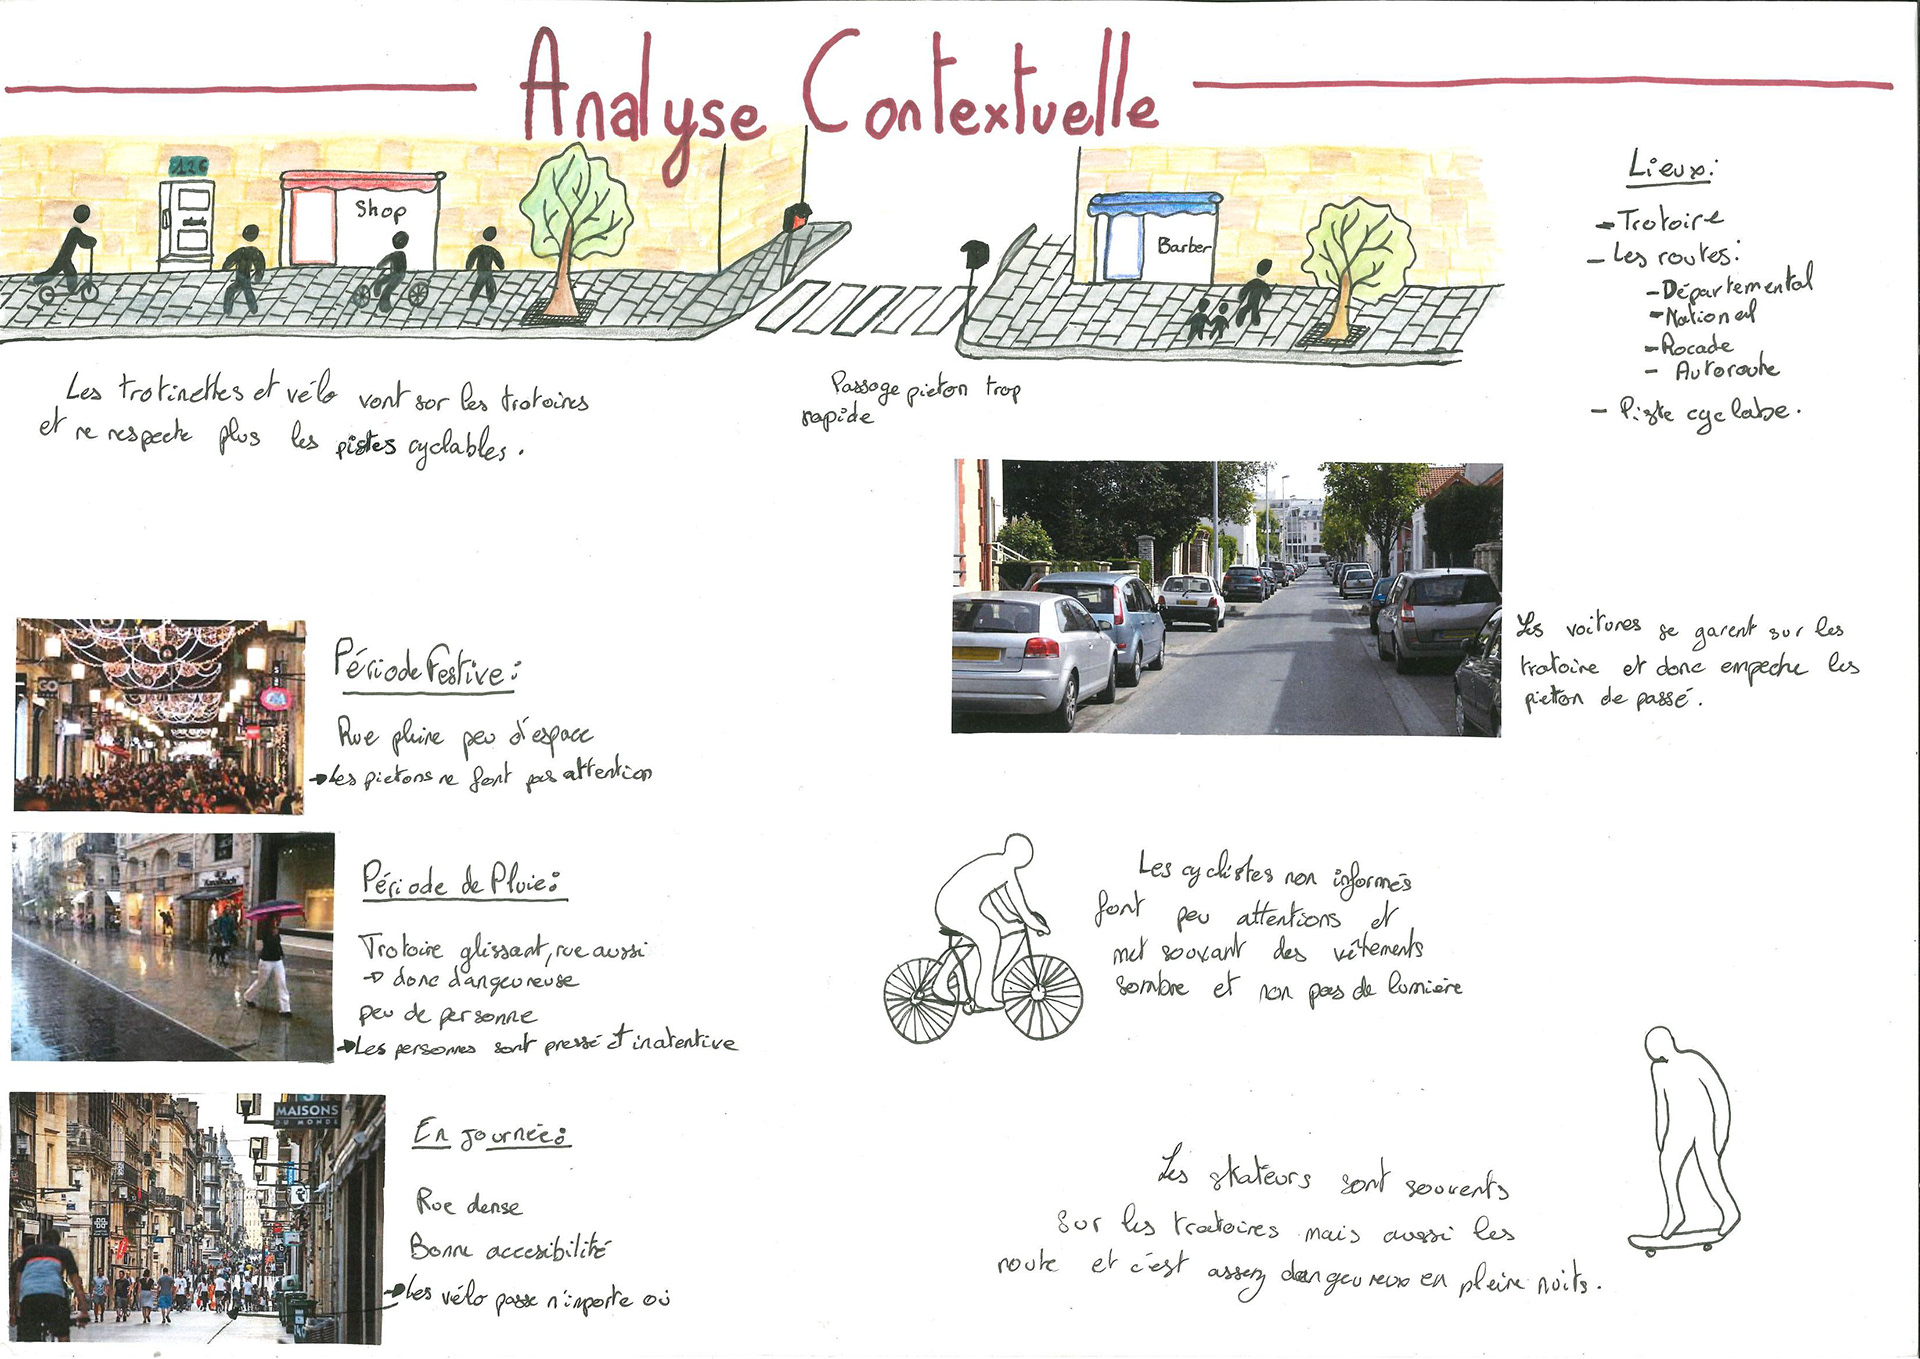 Analyse Contextuelle
126
Shop
Barber
Lieux:
- Trotoire
- Les routes:
- Départemental
- National
- Rocade
- Autoroute
- Piste cyclabe.
Les trotinettes et vélo vont sur les trotoires
et ne respecte plus les pistes cyclables.
Passage pieton trop
rapide
Les voitures se garent sur les
trotoire et donc empeche les
pieton de passé.
Période Festive:
Rue pleine peu d'espace
→ Les pietons ne font pas attention
Période de Pluie:
Trotoire glissant, rue aussi
→ donc dangeureuse
peu de personne
→ Les personnes sont pressé et inatentive
Les cyclistes non informés
font peu attentions et
met souvant des vêtements
sombre et non pas de lumière
MAISONS
DU MONDE
En journée:
Rue dense
Bonne accesibilité
→ Les vélo passe n'importe où
Les skateurs sont souvents
sur les trotoires mais aussi les
route et c'est assez dangeureux en pleine nuits.